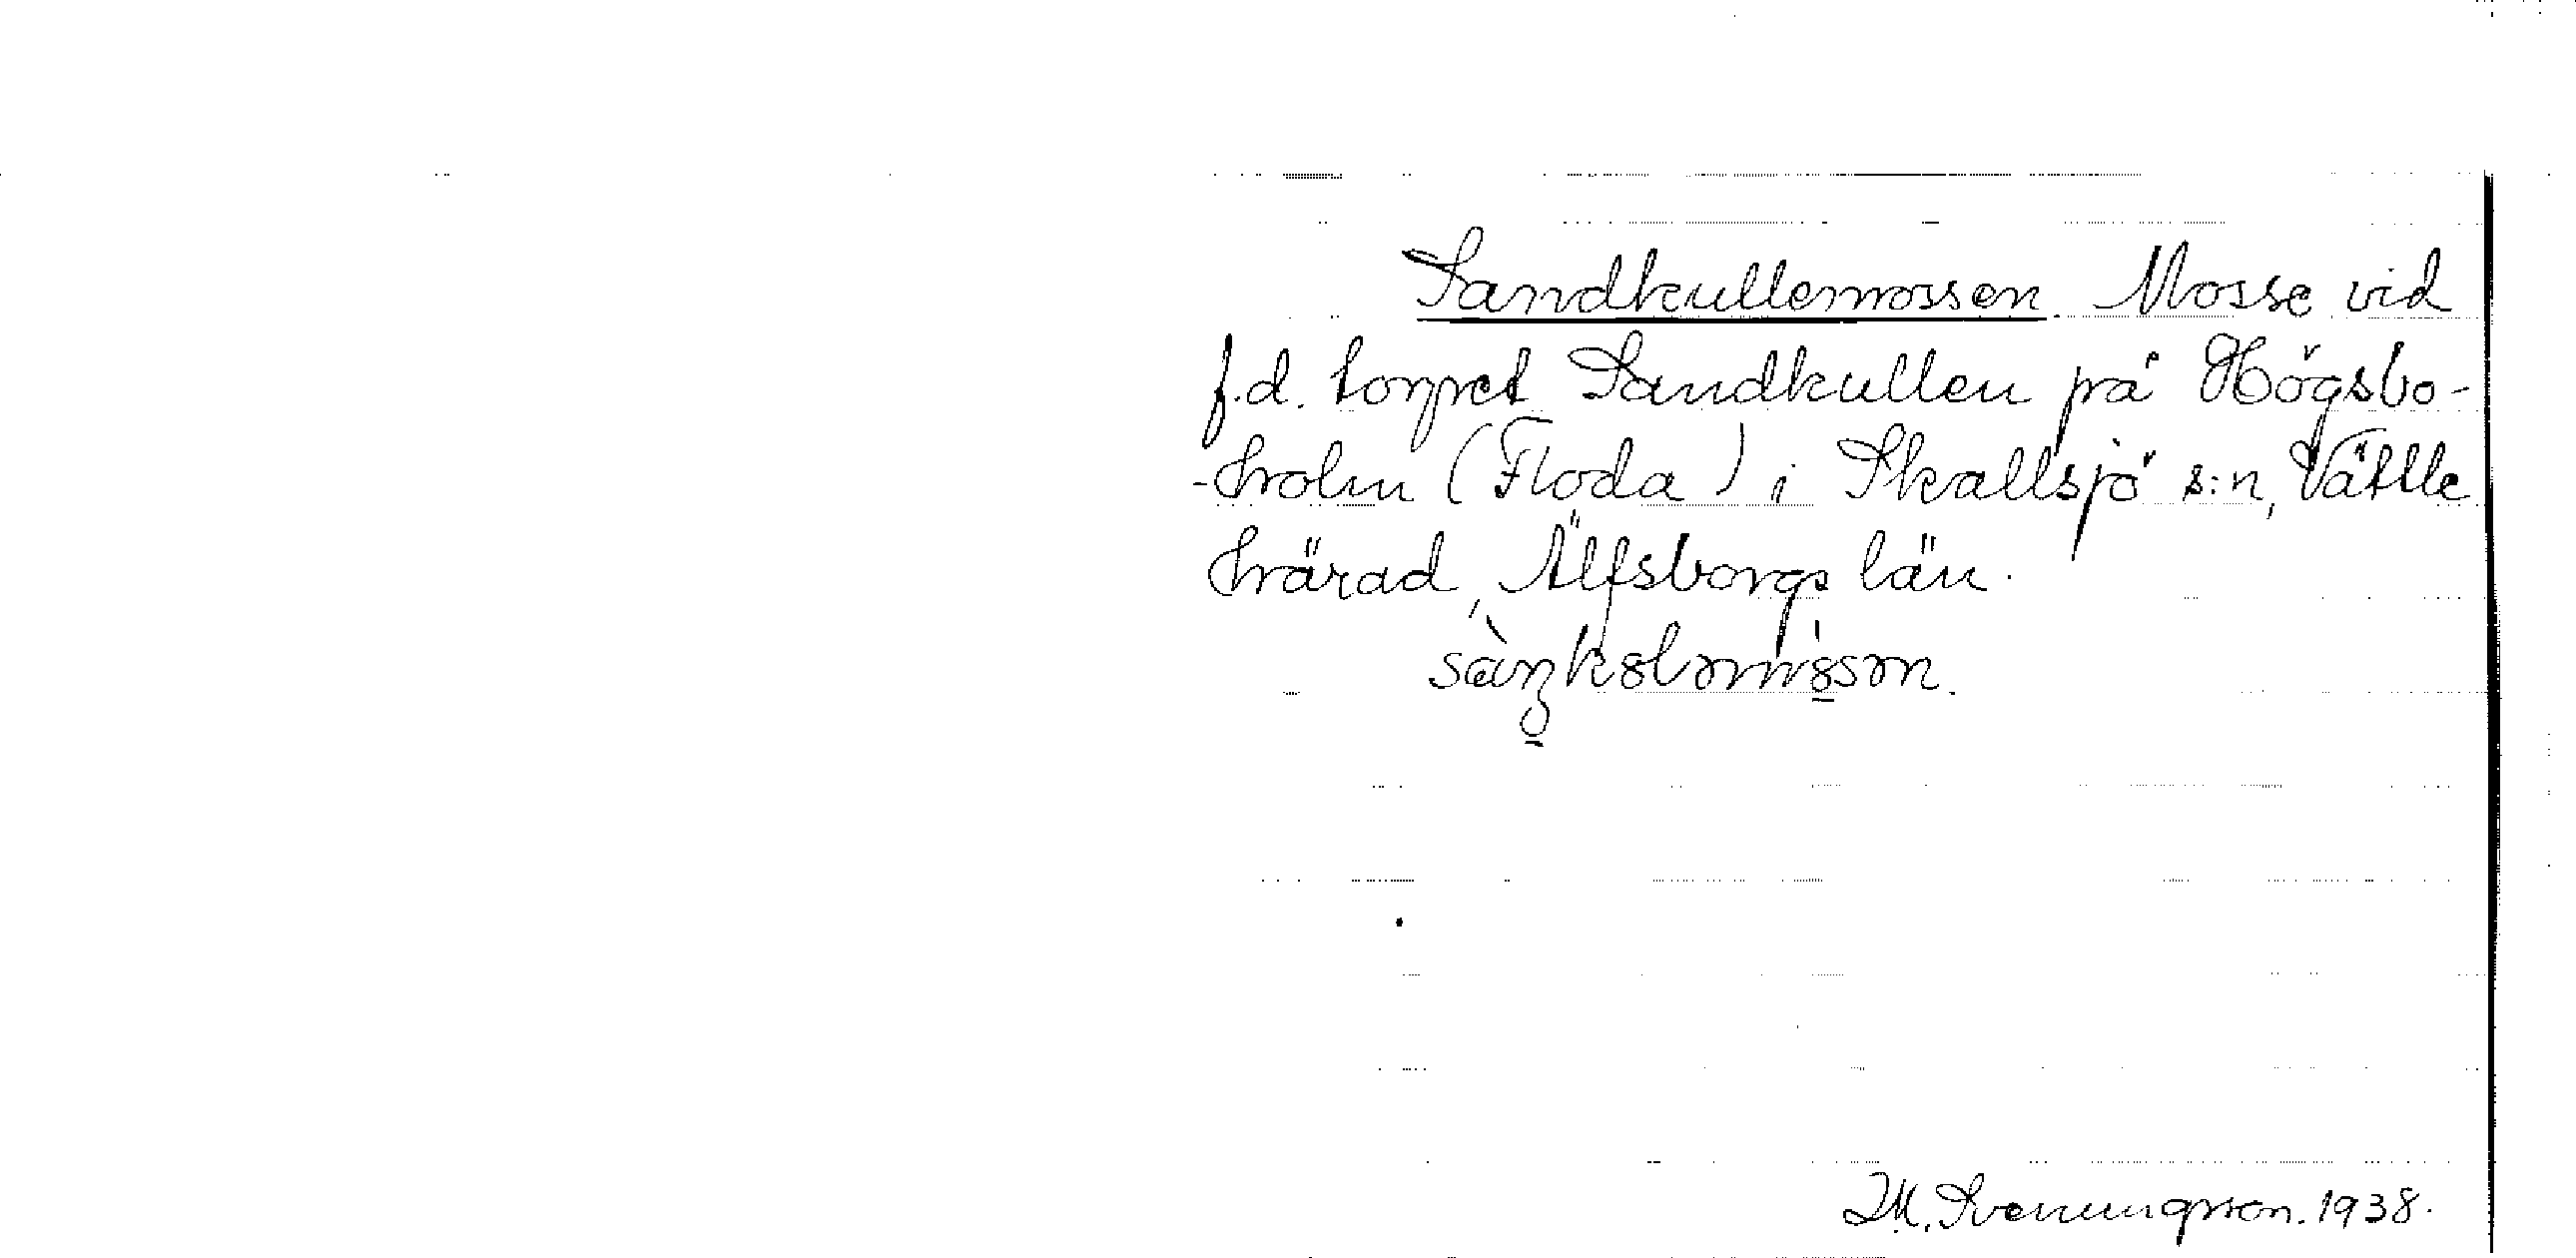 Sandkullemossen. Mosse vid
f.d. torpet Sandkullen på Högsbo-
-holm (Floda) i Skallsjö s:n, Vättle
härad, Älfsborgs län.
I.M. Svenungsson. 1938.